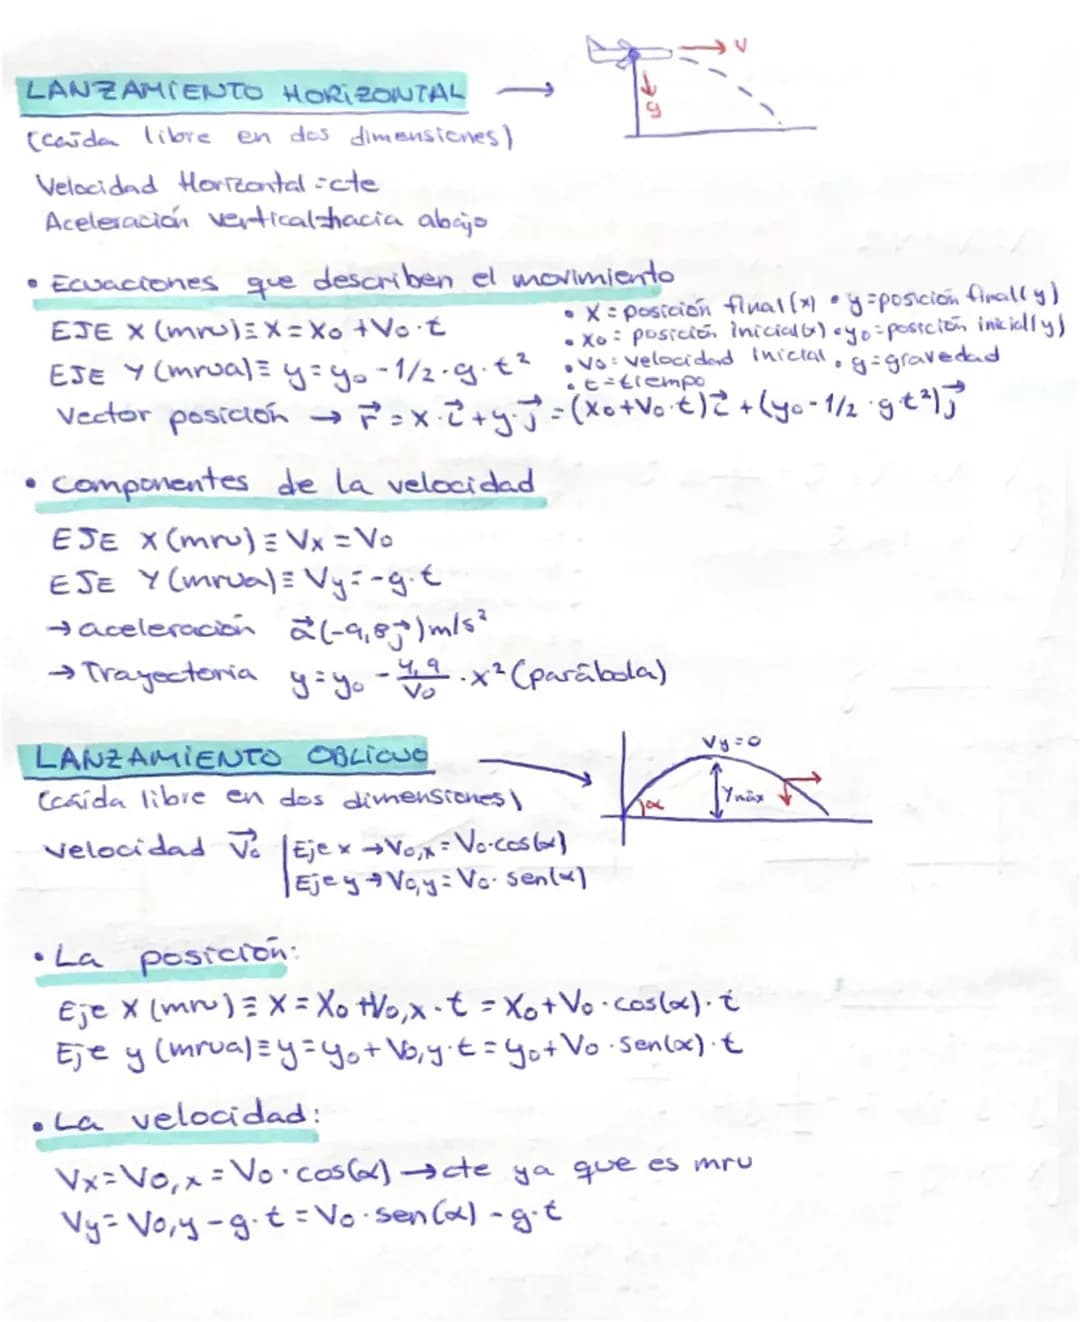 LANZAMIENTO HORIZONTAL →
V
g
(caída libre en dos dimensiones)
Velocidad Horizontal = cte
Aceleración vertical = hacia abajo
• Ecuaciones que describen el movimiento
EJE X (mru) ≡ X = X₀ + V₀ · t
• X = posición final (x) • y = posición final (y)
• X₀ = posición inicial (x) • y₀ = posición inicial (y)
EJE Y (mrua) ≡ y = y₀ - 1/2 · g · t²
• V₀ = velocidad inicial • g = gravedad
• t = tiempo
Vector posición → r⃗ = x · i⃗ + y · j⃗ = (X₀ + V₀ · t) i⃗ + (y₀ - 1/2 · g t²) j⃗
• Componentes de la velocidad
EJE X (mru) ≡ Vx = V₀
EJE Y (mrua) ≡ Vy = -g · t
→ aceleración a⃗ (-9,8 j⃗) m/s²
→ Trayectoria y = y₀ - 4,9/V₀ · x² (parábola)
LANZAMIENTO OBLICUO →
Vy = 0
Ymáx
α
(caída libre en dos dimensiones)
velocidad V⃗₀ | Eje x → V₀,x = V₀ · cos(α)
| Eje y → V₀,y = V₀ · sen(α)
• La posición:
Eje X (mru) ≡ X = X₀ + V₀,x · t = X₀ + V₀ · cos(α) · t
Eje y (mrua) ≡ y = y₀ + V₀,y · t = y₀ + V₀ · sen(α) · t
• La velocidad:
Vx = V₀,x = V₀ · cos(α) → cte ya que es mru
Vy = V₀,y - g · t = V₀ · sen(α) - g · t